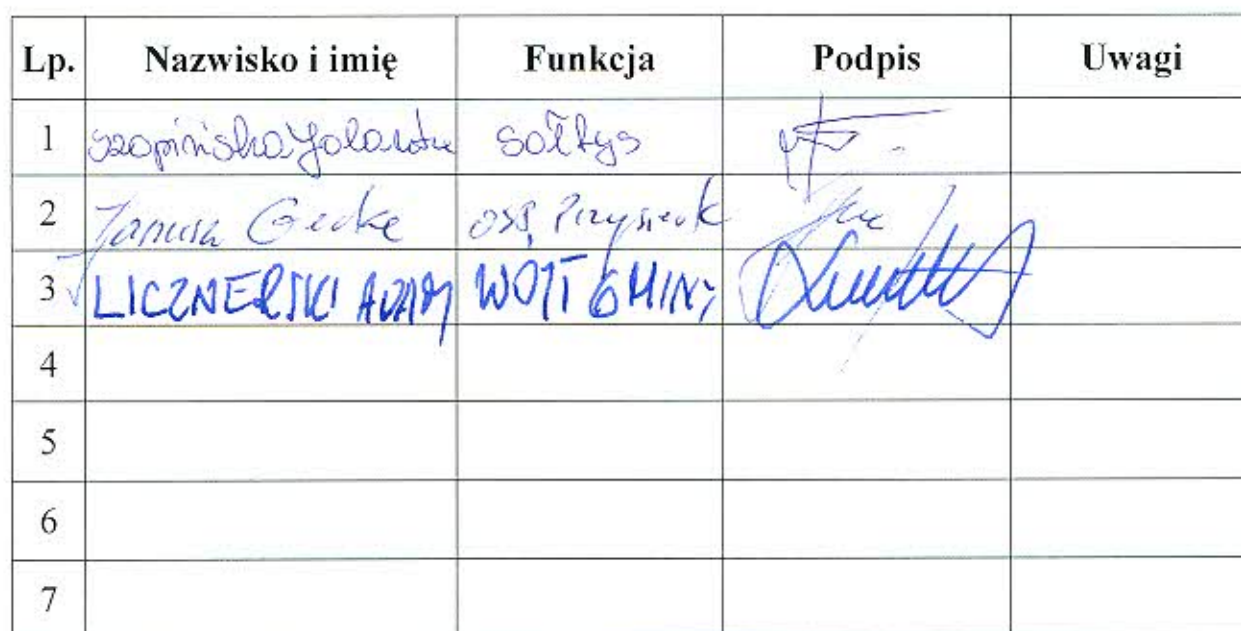 Lp. Nazwisko i imię Funkcja Podpis Uwagi
1 Szopińska Jolanta Sołtys
2 Janusz Gerke OSP Przysiersk
3 LICZNERSKI ADAM WÓJT GMINY
4
5
6
7